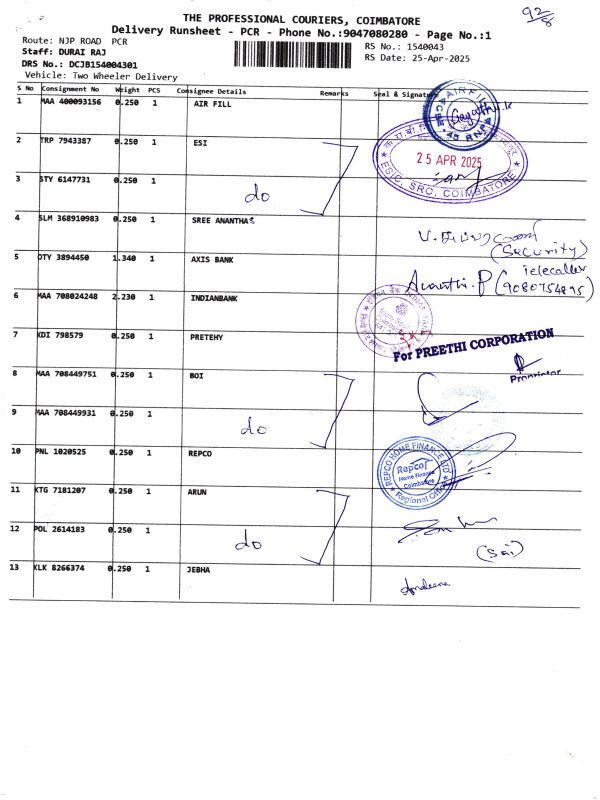 92/8
THE PROFESSIONAL COURIERS, COIMBATORE
Delivery Runsheet - PCR - Phone No.:9047080280 - Page No.:1
Route: NJP ROAD PCR
RS No.: 1540043
Staff: DURAI RAJ
RS Date: 25-Apr-2025
DRS No.: DCJB154004301
Vehicle: Two Wheeler Delivery
S No Consignment No Weight PCS Consignee Details Remarks Seal & Signature
1 MAA 400093156 0.250 1 AIR FILL
2 TRP 7943387 0.250 1 ESI
25 APR 2025
ESIC, SRC, COIMBATORE
3 STY 6147731 0.250 1 do
4 SLM 368910983 0.250 1 SREE ANANTHAS
(Security)
5 OTY 3894450 1.340 1 AXIS BANK
Ananthi.P (Telecaller
9080754895)
6 MAA 708024248 2.230 1 INDIANBANK
7 KDI 798579 0.250 1 PRETEHY
For PREETHI CORPORATION
Proprietor
8 MAA 708449751 0.250 1 BOI
9 MAA 708449931 0.250 1 do
10 PNL 1020525 0.250 1 REPCO
REPCO HOME FINANCE LTD
Repco
Home Finance
Coimbatore
Regional Office
11 KTG 7181207 0.250 1 ARUN
12 POL 2614183 0.250 1 do
(Sai)
13 KLK 8266374 0.250 1 JEBHA